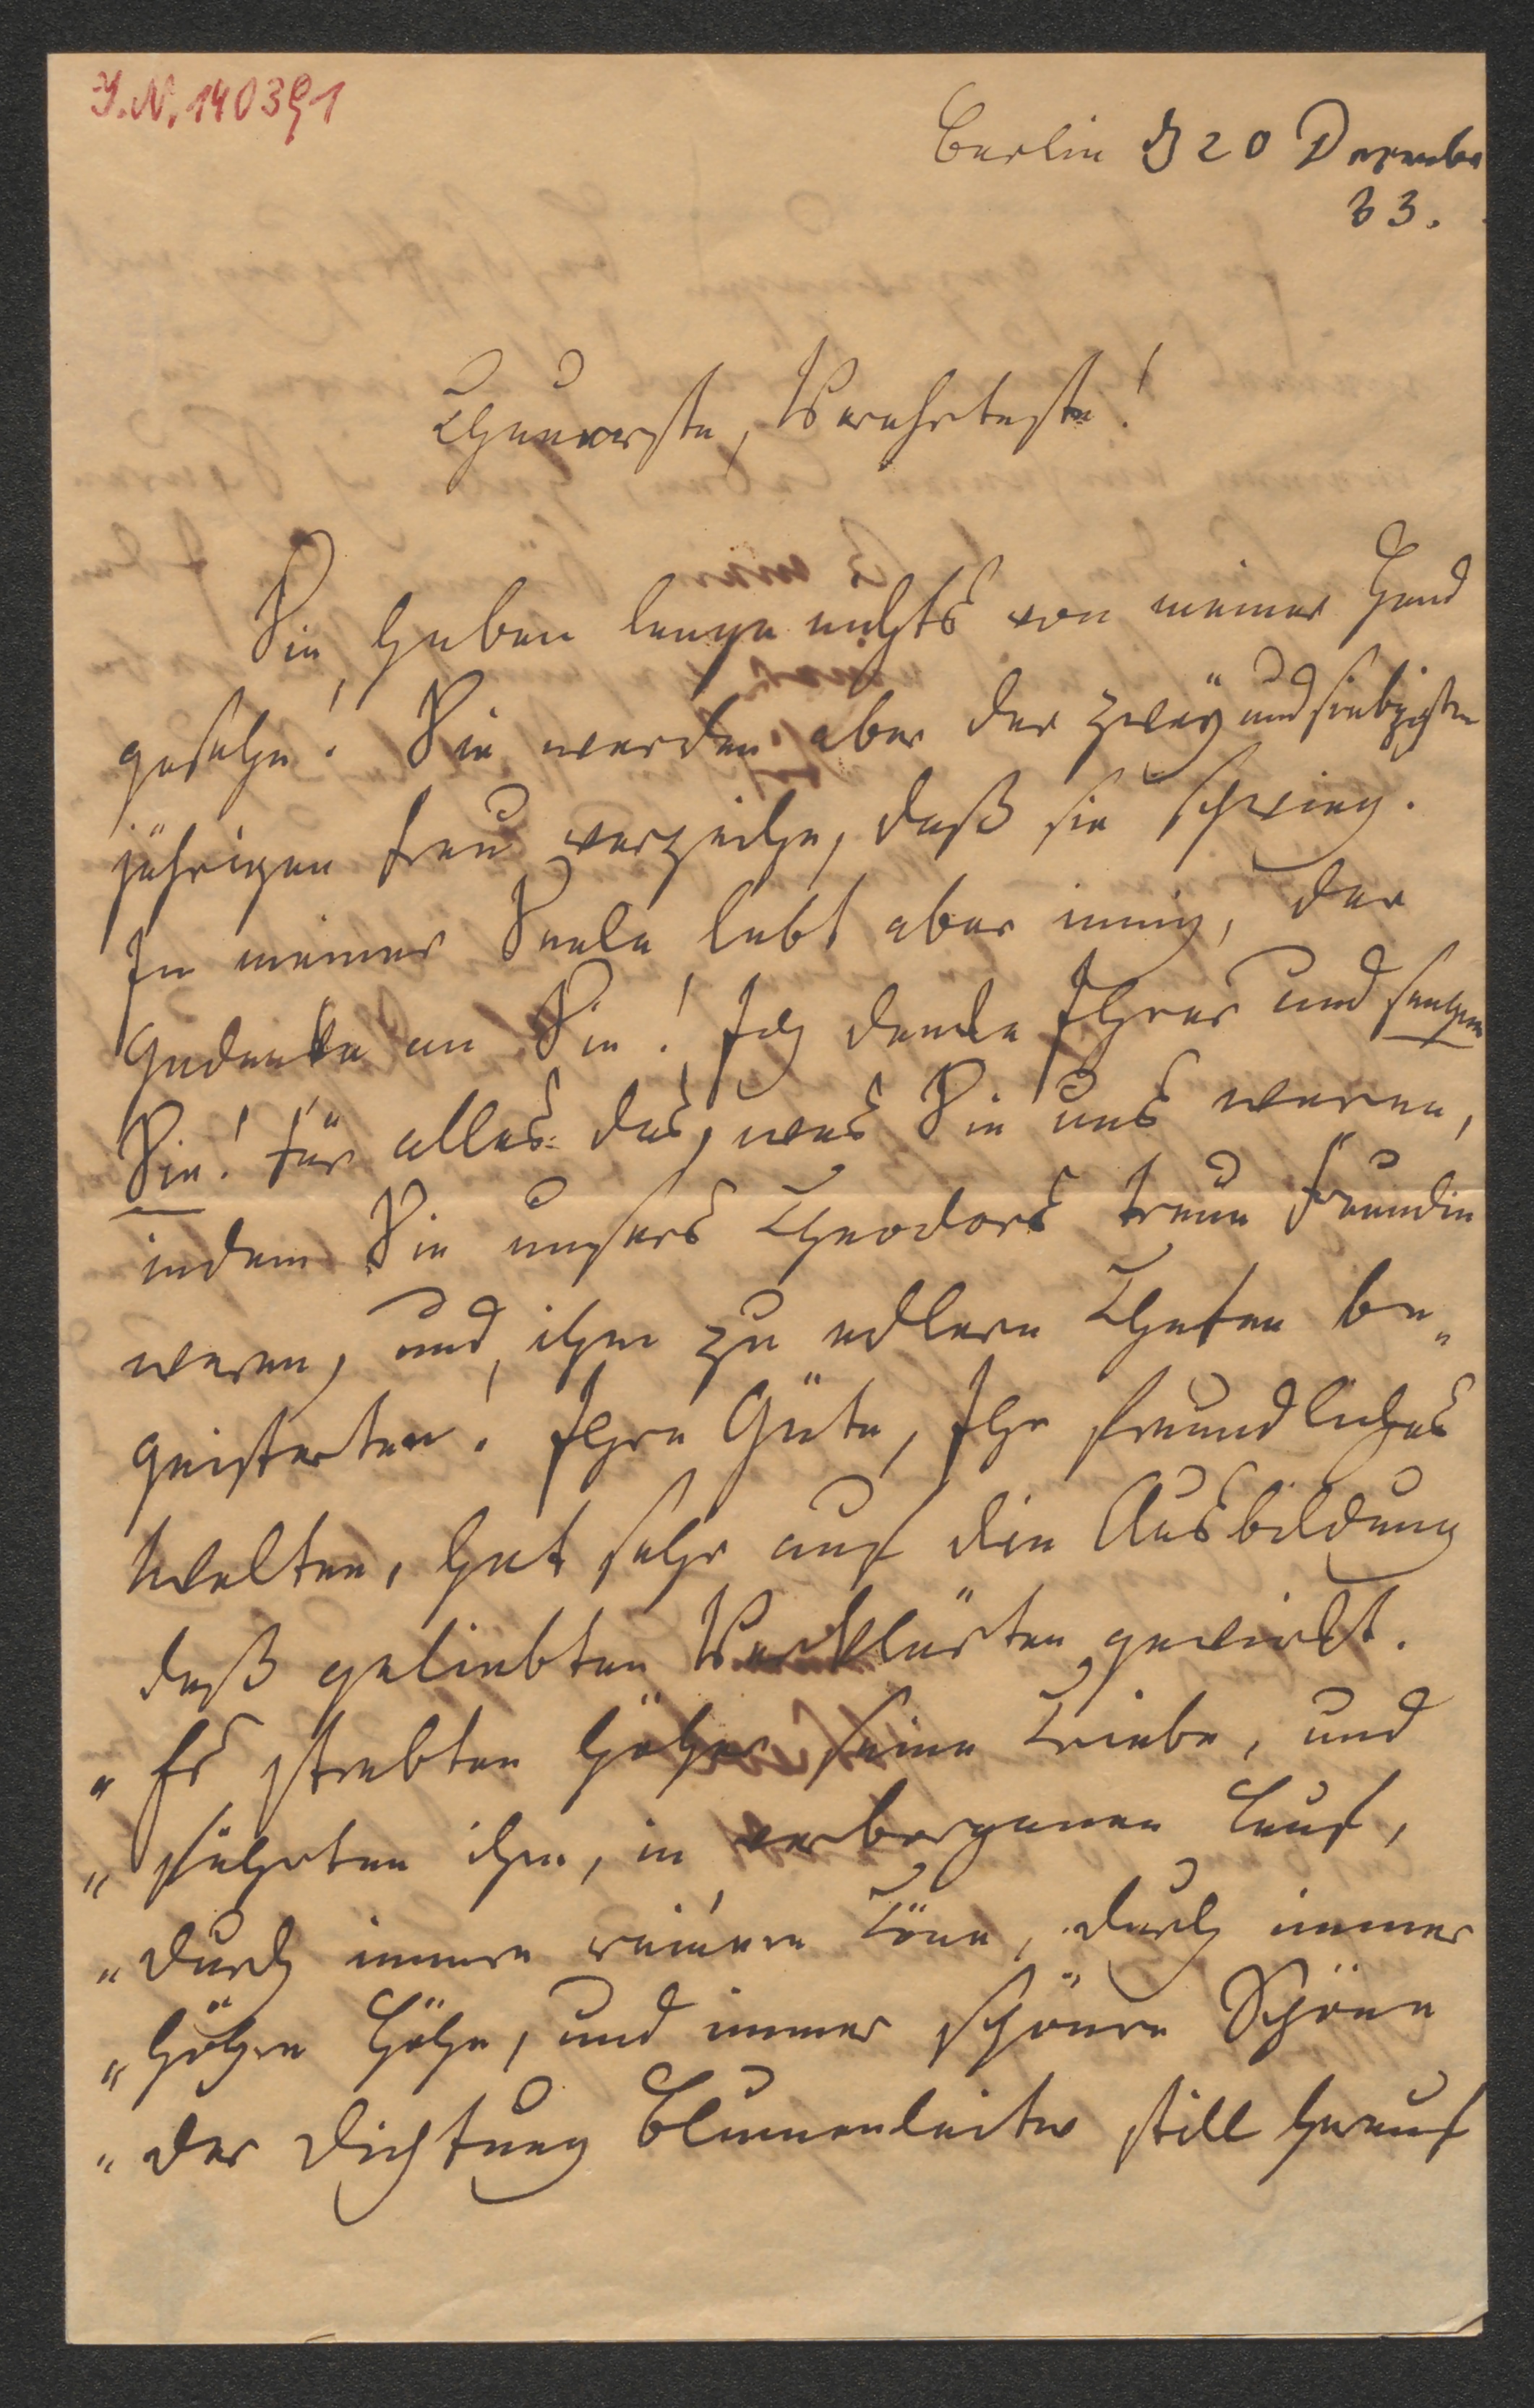 I.N. 140391
Berlin d 20 Dezember
33.
Theuerste, Verehrteste!
Sie haben lange nichts von meiner Hand
gesehn! Sie werden aber der zweÿ und siebzigsten
jährigen Frau verzeihn, daß sie schwieg.
In meiner Seele lebt aber innig, der
Gedanke an Sie! Ich denke Ihrer und seegne
Sie! für alles das, was Sie uns waren,
indem Sie unsers Theodors treue Freundin
waren, und ihn zu edlern Thaten be„
geisterten! Ihre Güte, Ihr freundliches
Walten, hat sehr auf die Ausbildung
deß geliebten Verklärten gewirkt.
„Es strebten höher seine Triebe, und
„führten ihn, in verborgenen Lauf,
„durch immer reinere Töne, durch immer
„höhre Höhn, und immer schönre Schöne
„der Dichtung Blumenleiter still herauf